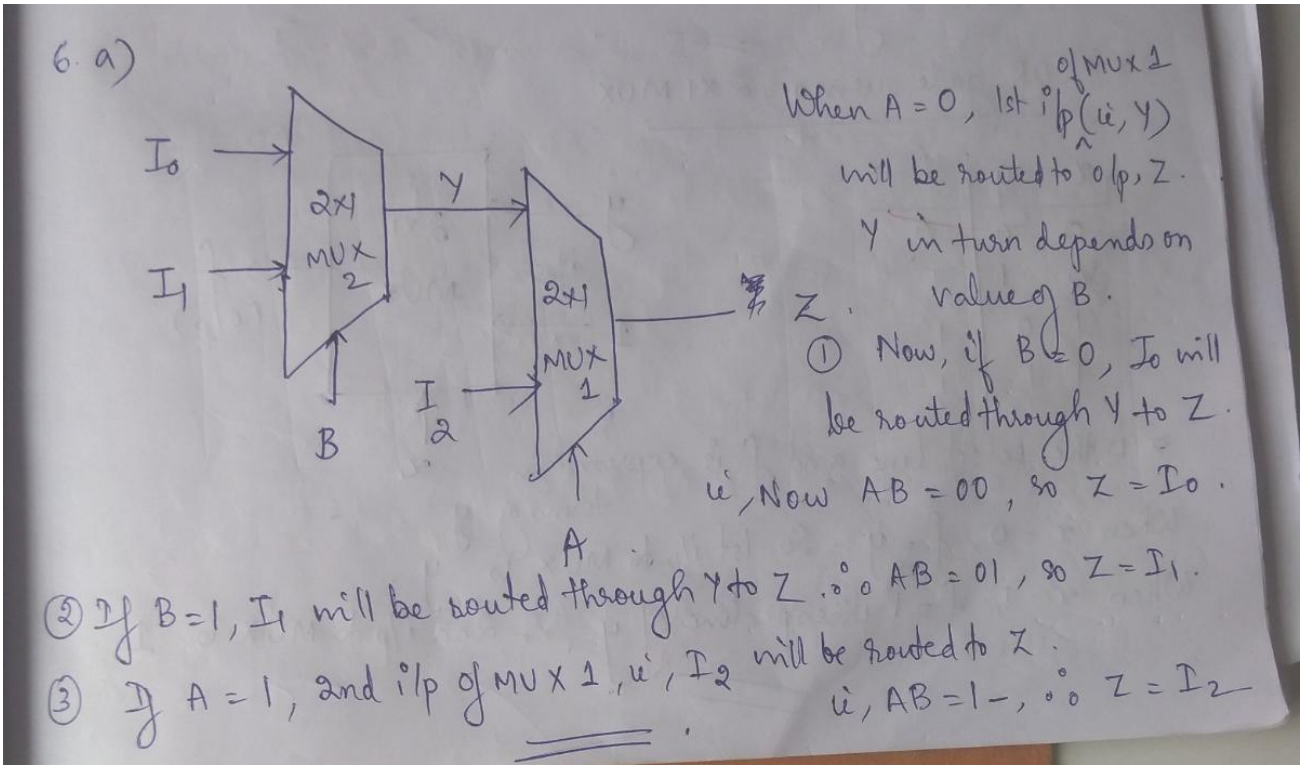 6. a)
I0
I1
2x1
MUX
2
B
Y
I
2
2x1
MUX
1
A
Z.
of MUX 1
When A = 0, 1st i/p (ie, Y)
^
will be routed to o/p, Z.
Y in turn depends on
value of B.
① Now, if B = 0, I0 will
be routed through Y to Z.
ie, Now AB = 00, so Z = I0.
② If B=1, I1 will be routed through Y to Z. ∴ AB = 01, so Z = I1.
③ If A = 1, 2nd i/p of MUX 1, ie, I2 will be routed to Z.
ie, AB = 1-, ∴ Z = I2